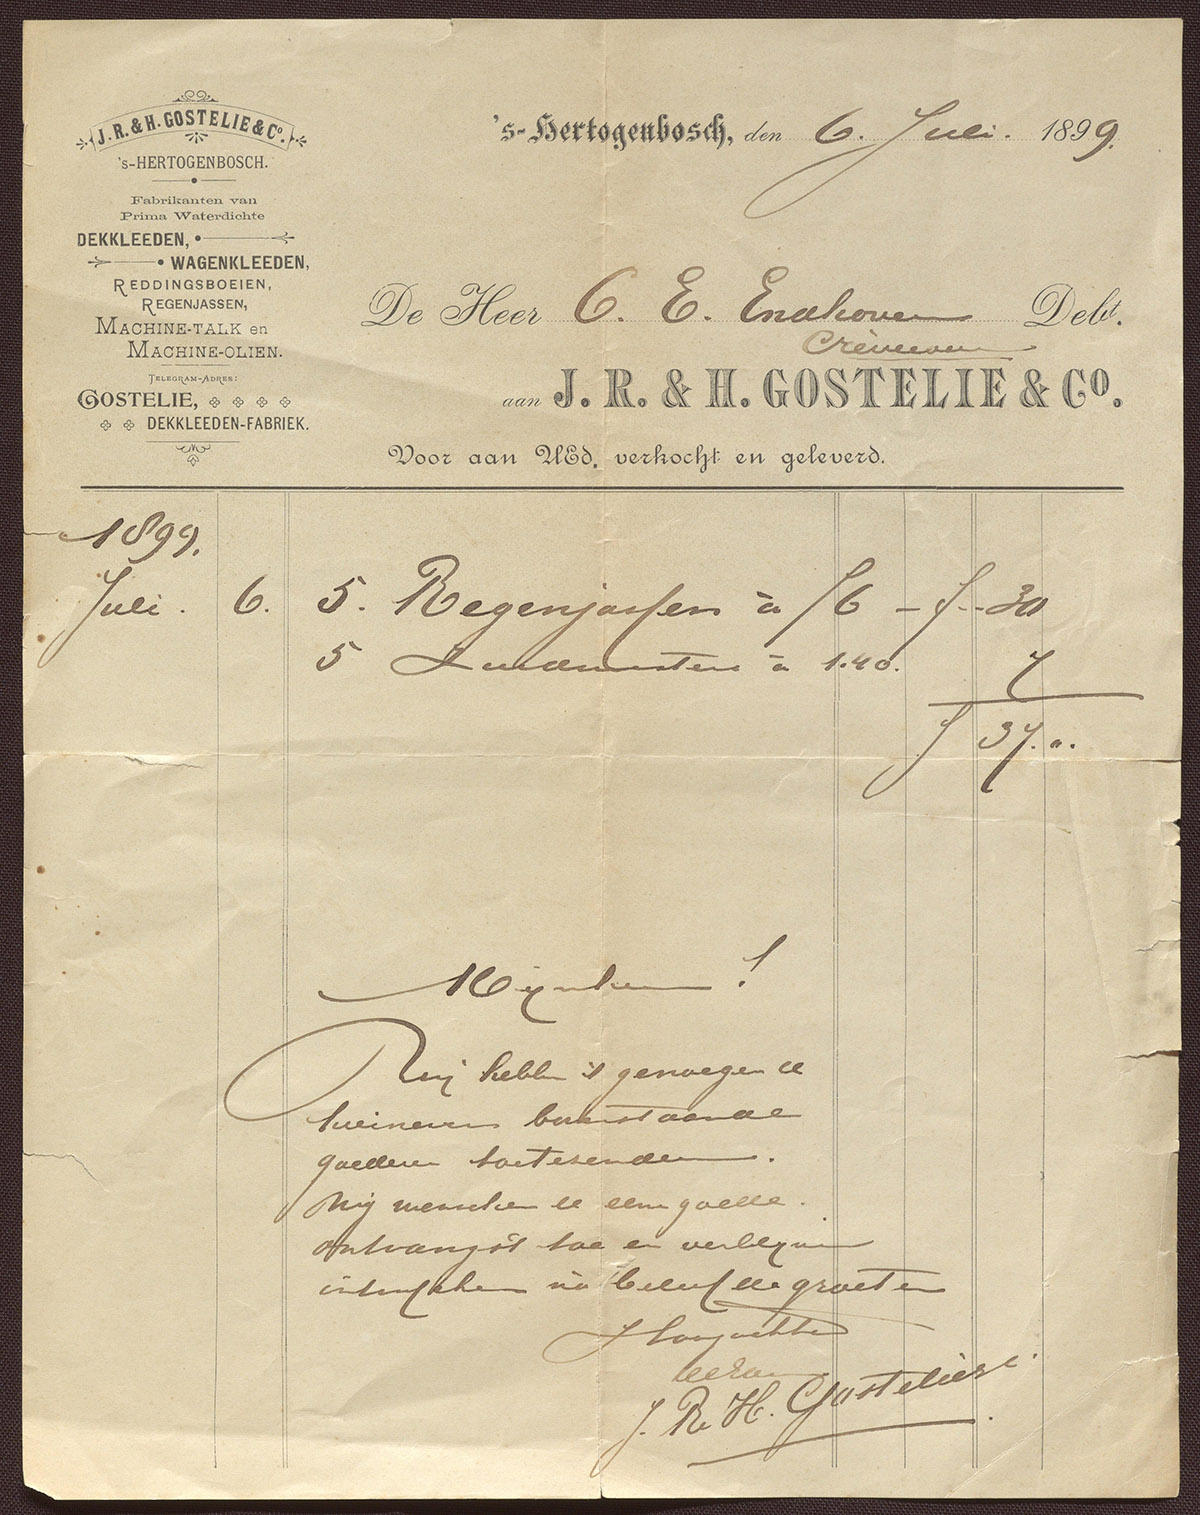 J. R. & H. GOSTELIE & Co.
's-HERTOGENBOSCH.
Fabrikanten van
Prima Waterdichte
DEKKLEEDEN,
WAGENKLEEDEN,
REDDINGSBOEIEN,
REGENJASSEN,
MACHINE-TALK en
MACHINE-OLIEN.
TELEGRAM-ADRES:
GOSTELIE,
DEKKLEEDEN-FABRIEK.
's-Hertogenbosch, den 6. Juli. 1899.
De Heer C. E. Endhoven Debt.
aan J. R. & H. GOSTELIE & Co.
Voor aan UEd. verkocht en geleverd.
1899.
Juli. 6. 5. Regenjassen à f6 – f -- 30
5 à 1.40. 7
f 37. " .
Mijnheer!
Wij hebben 't genoegen U
bovenstaande
goederen toetezenden.
Wij wenschen U eene goede
ontvangst toe en verblijven
intusschen na beleefde groeten
Hoogachtend
UEd
J. R. H. Gostelie & C.